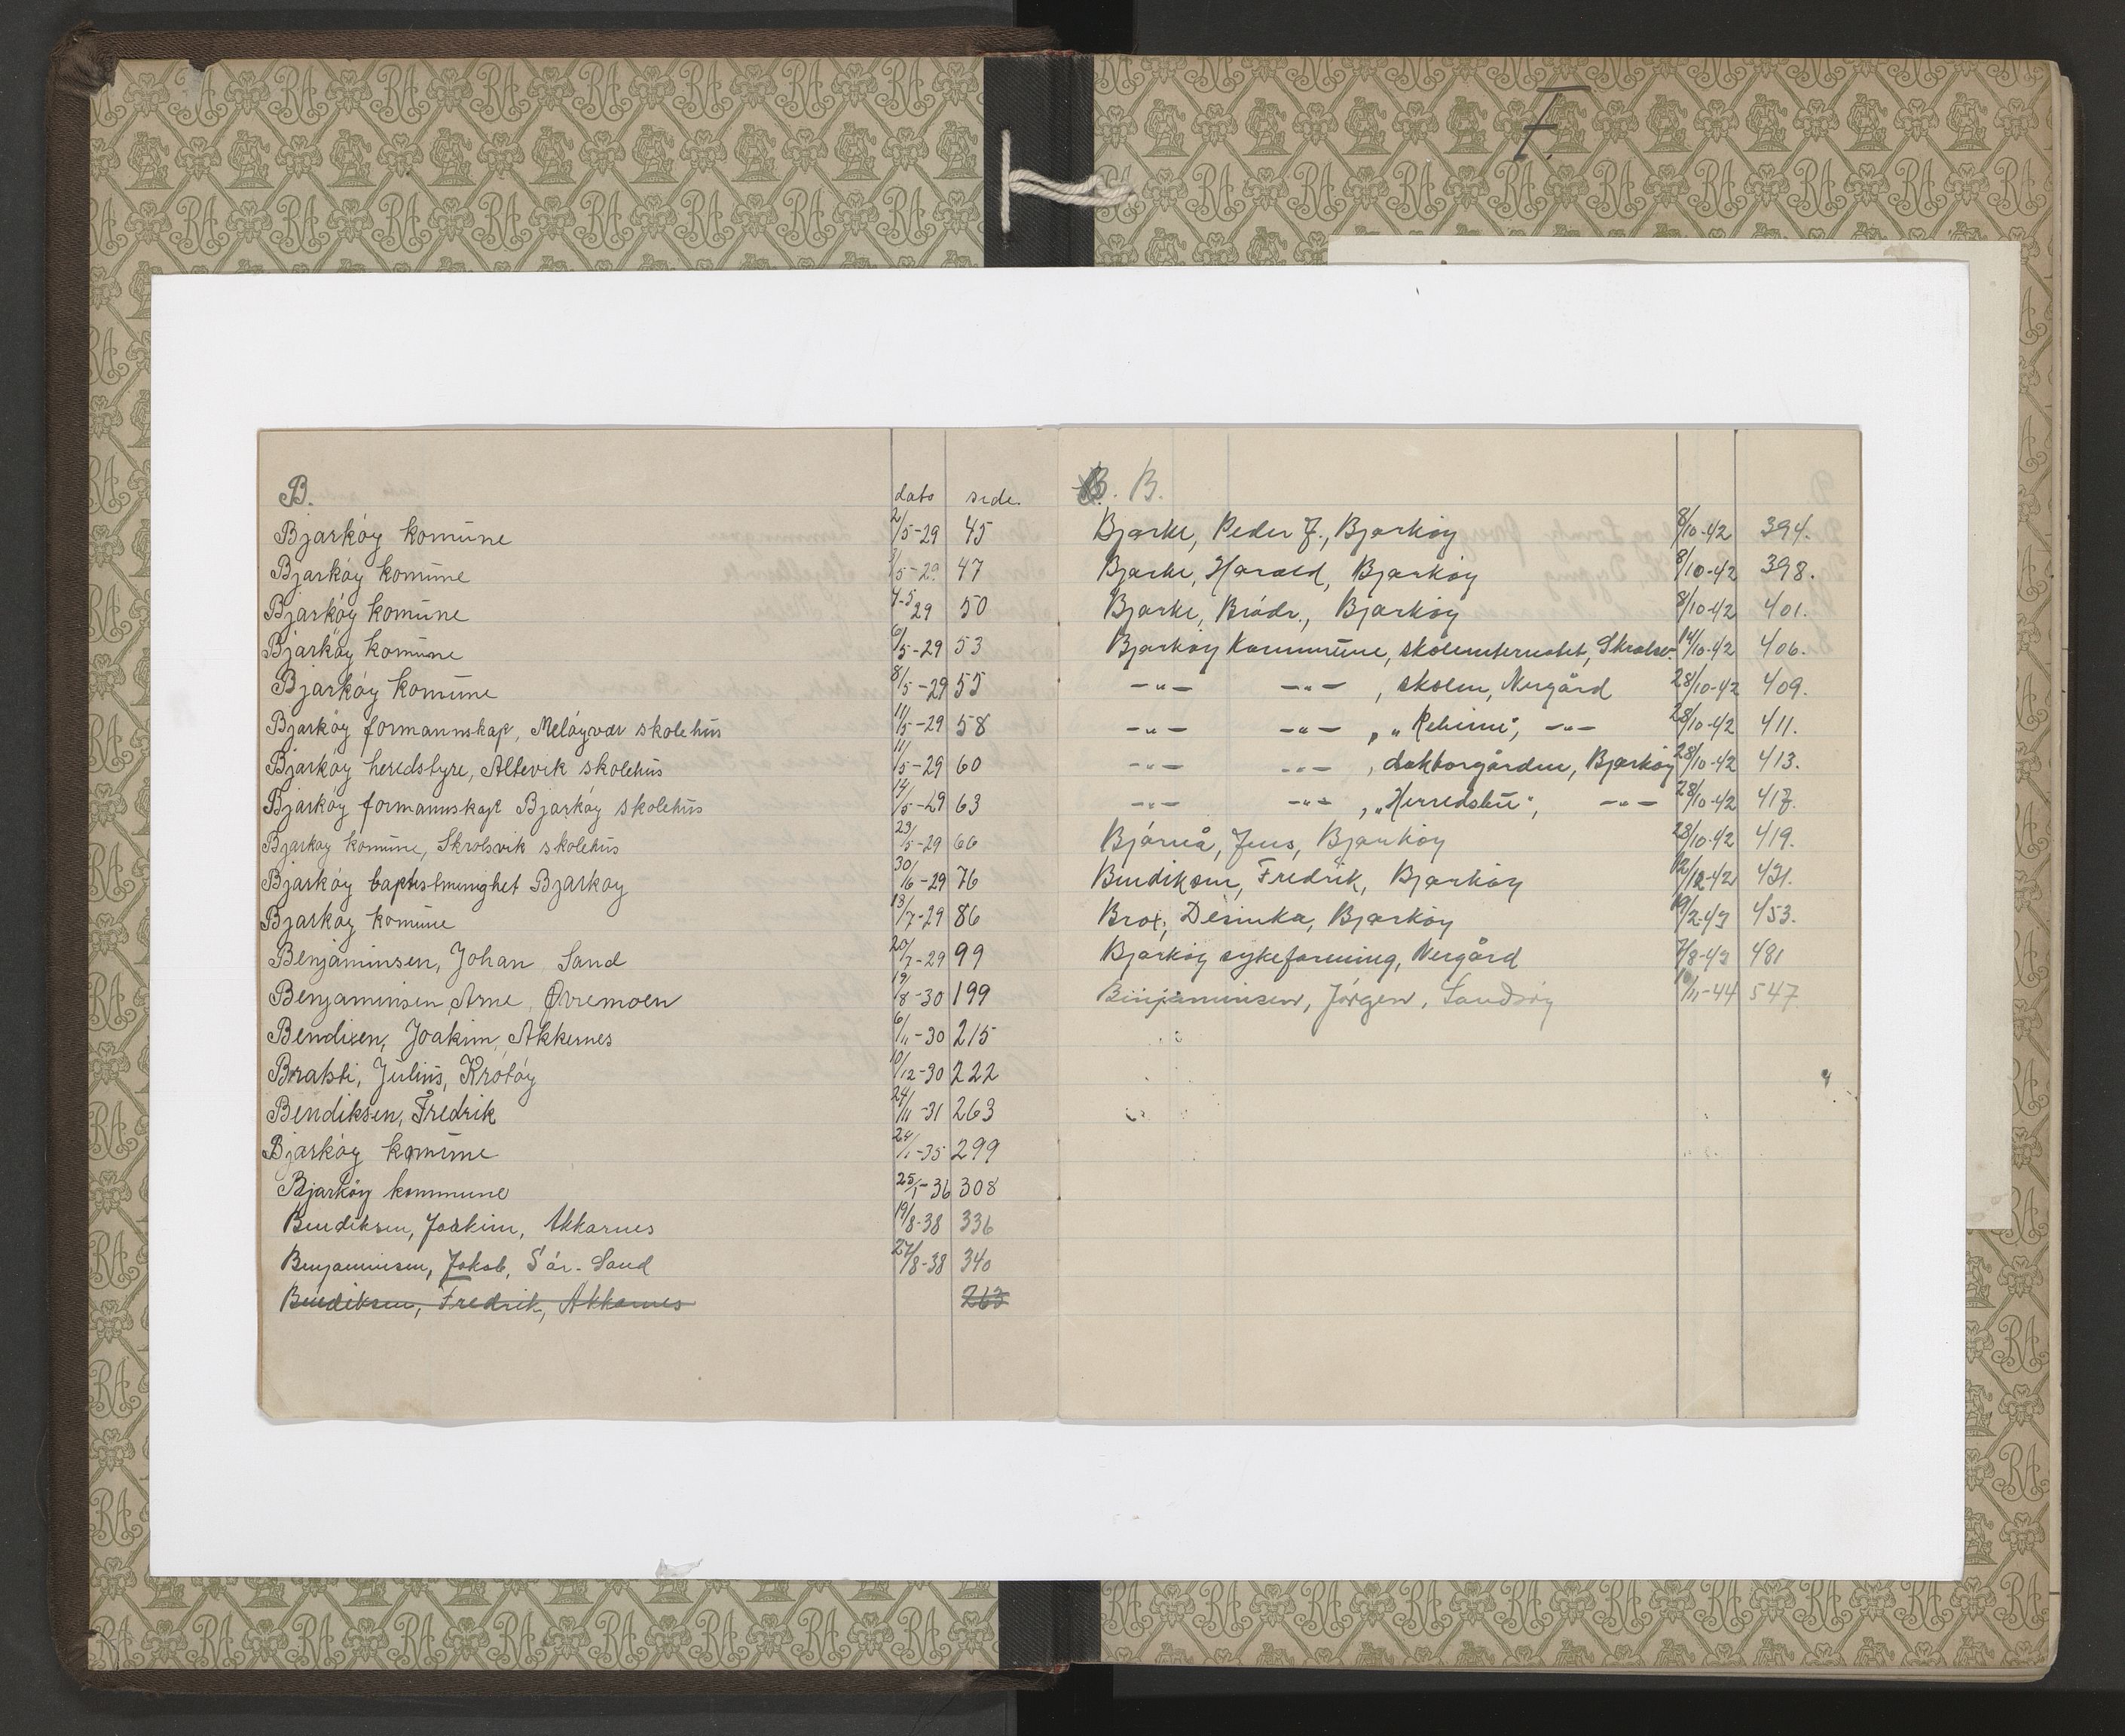 F.
B. dato side.
Bjarköy komūne 2/5-29 45
Bjarköy komūne 3/5-29 47
Bjarköy komūne 4-5 29 50
Bjarköy komūne 6/5-29 53
Bjarköy komūne 8/5-29 55
Bjarköy formannskap, Melöyvær skolehūs 11/5-29 58
Bjarköy heredstyre, Altevik skolehūs 11/5-29 60
Bjarköy formannskap Bjarköy skolehūs 14/5-29 63
Bjarköy komūne, Skrolsvik skolehūs 23/5-29 66
Bjarköy baptistmenighet Bjarkøy 30/6-29 76
Bjarkøy komūne 13/7-29 86
Benjaminsen, Johan Sand 20/7-29 99
Benjaminsen Arne, Øvremoen 19/8-30 199
Bendixen, Joakim, Akkernes 6/11-30 215
Bratsti, Jūliūs, Krötöy 10/12-30 222
Bendiksen, Fredrik 24/11-31 263
Bjarköy komūne 24/1-35 299
Bjarköy kommune 25/5-36 308
Bendiksen, Joakim, Akkarnes 19/8-38 336
Benjaminsen, Jakob, Sör-Sand 27/8-38 340
Bendiksen, Fredrik, Akkarnes 263
B. B.
Bjarke, Peder J., Bjarköy 8/10-42 394.
Bjarke, Harald, Bjarköy 8/10-42 398.
Bjarke, Brödr., Bjarköy 8/10-42 401.
Bjarköy Kommūne, skoleinternatet, Skrolsv. 14/10-42 406.
-"- -"- , skolen, Nergård 28/10-42 409.
-"- -"- , "Reheim", -"- 28/10-42 411.
-"- -"- , doktorgården, Bjarköy 28/10-42 413.
-"- -"- , "Herredsbū", -"- 28/10-42 417.
Bjørnå, Jens, Bjarköy 28/10-42 419.
Bendiksen, Fredrik, Bjarköy 12/12-42 431.
Brox, Desinka, Bjarköy 19/2-43 453.
Bjarköy sykeforening, Nergård 7/8-43 481
Benjaminsen, Jörgen, Sandsöy /11-44 547